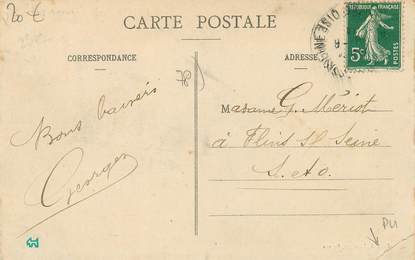 20 €
CARTE POSTALE
CORRESPONDANCE
ADRESSE
REPUBLIQUE FRANÇAISE
5c
POSTES
OISE
78
Madame G. Mériot
à Flins s/ Seine
S. et O.
Bons baisers
Georges
PLI